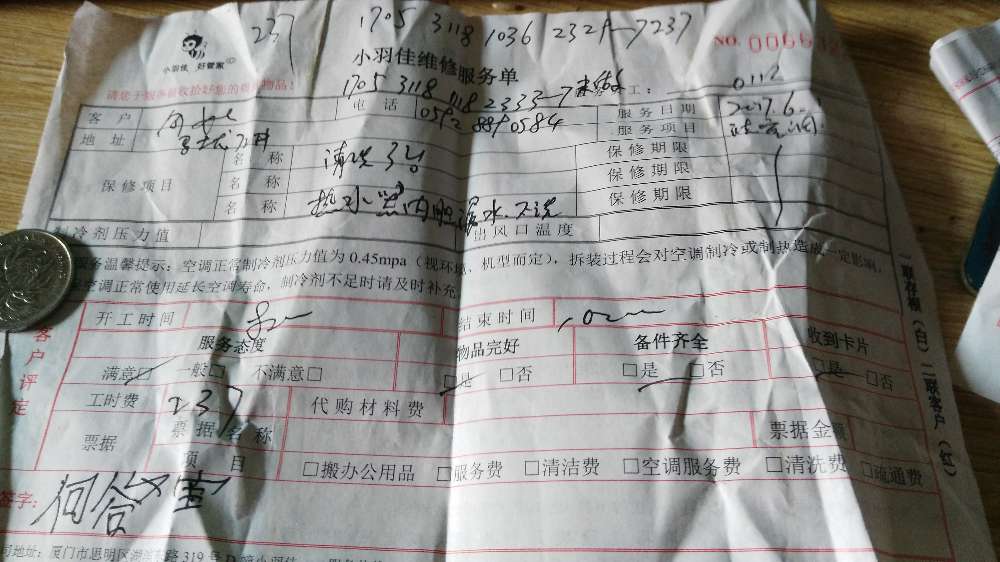 237 1705 3118 1036 2329-7237
小羽佳 好管家
小羽佳维修服务单
NO. 0066
请您于服务前收拾好您的贵重物品！
1705 3118 1118 2333-7
工： 0112
客户 电话 0592 8890584 服务日期 2017.6.
地址 服务项目
保修项目 名称 清洗3台 保修期限
名称 保修期限
名称 热水器内胆漏水.不洗 保修期限
制冷剂压力值 出风口温度
服务温馨提示：空调正常制冷剂压力值为 0.45mpa（视环境、机型而定），拆装过程会对空调制冷或制热造成一定影响，
空调正常使用延长空调寿命，制冷剂不足时请及时补充
客户评定
开工时间 结束时间
服务态度 物品完好 备件齐全 收到卡片
满意□ 一般□ 不满意□ □是 □否 □是 □否 □是 □否
工时费 237 代购材料费
票据 票据名称 票据金额
项目 □搬办公用品 □服务费 □清洁费 □空调服务费 □清洗费 □疏通费
签字：
司地址：厦门市思明区湖滨东路 319 号
一联存根（白）二联客户（红）